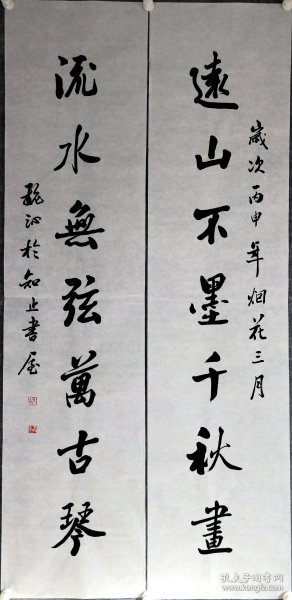 歲次丙申年烟花三月
遠山不墨千秋畫
流水無弦萬古琴
魏沁於知止書屋
孔夫子旧书网
kongfz.com